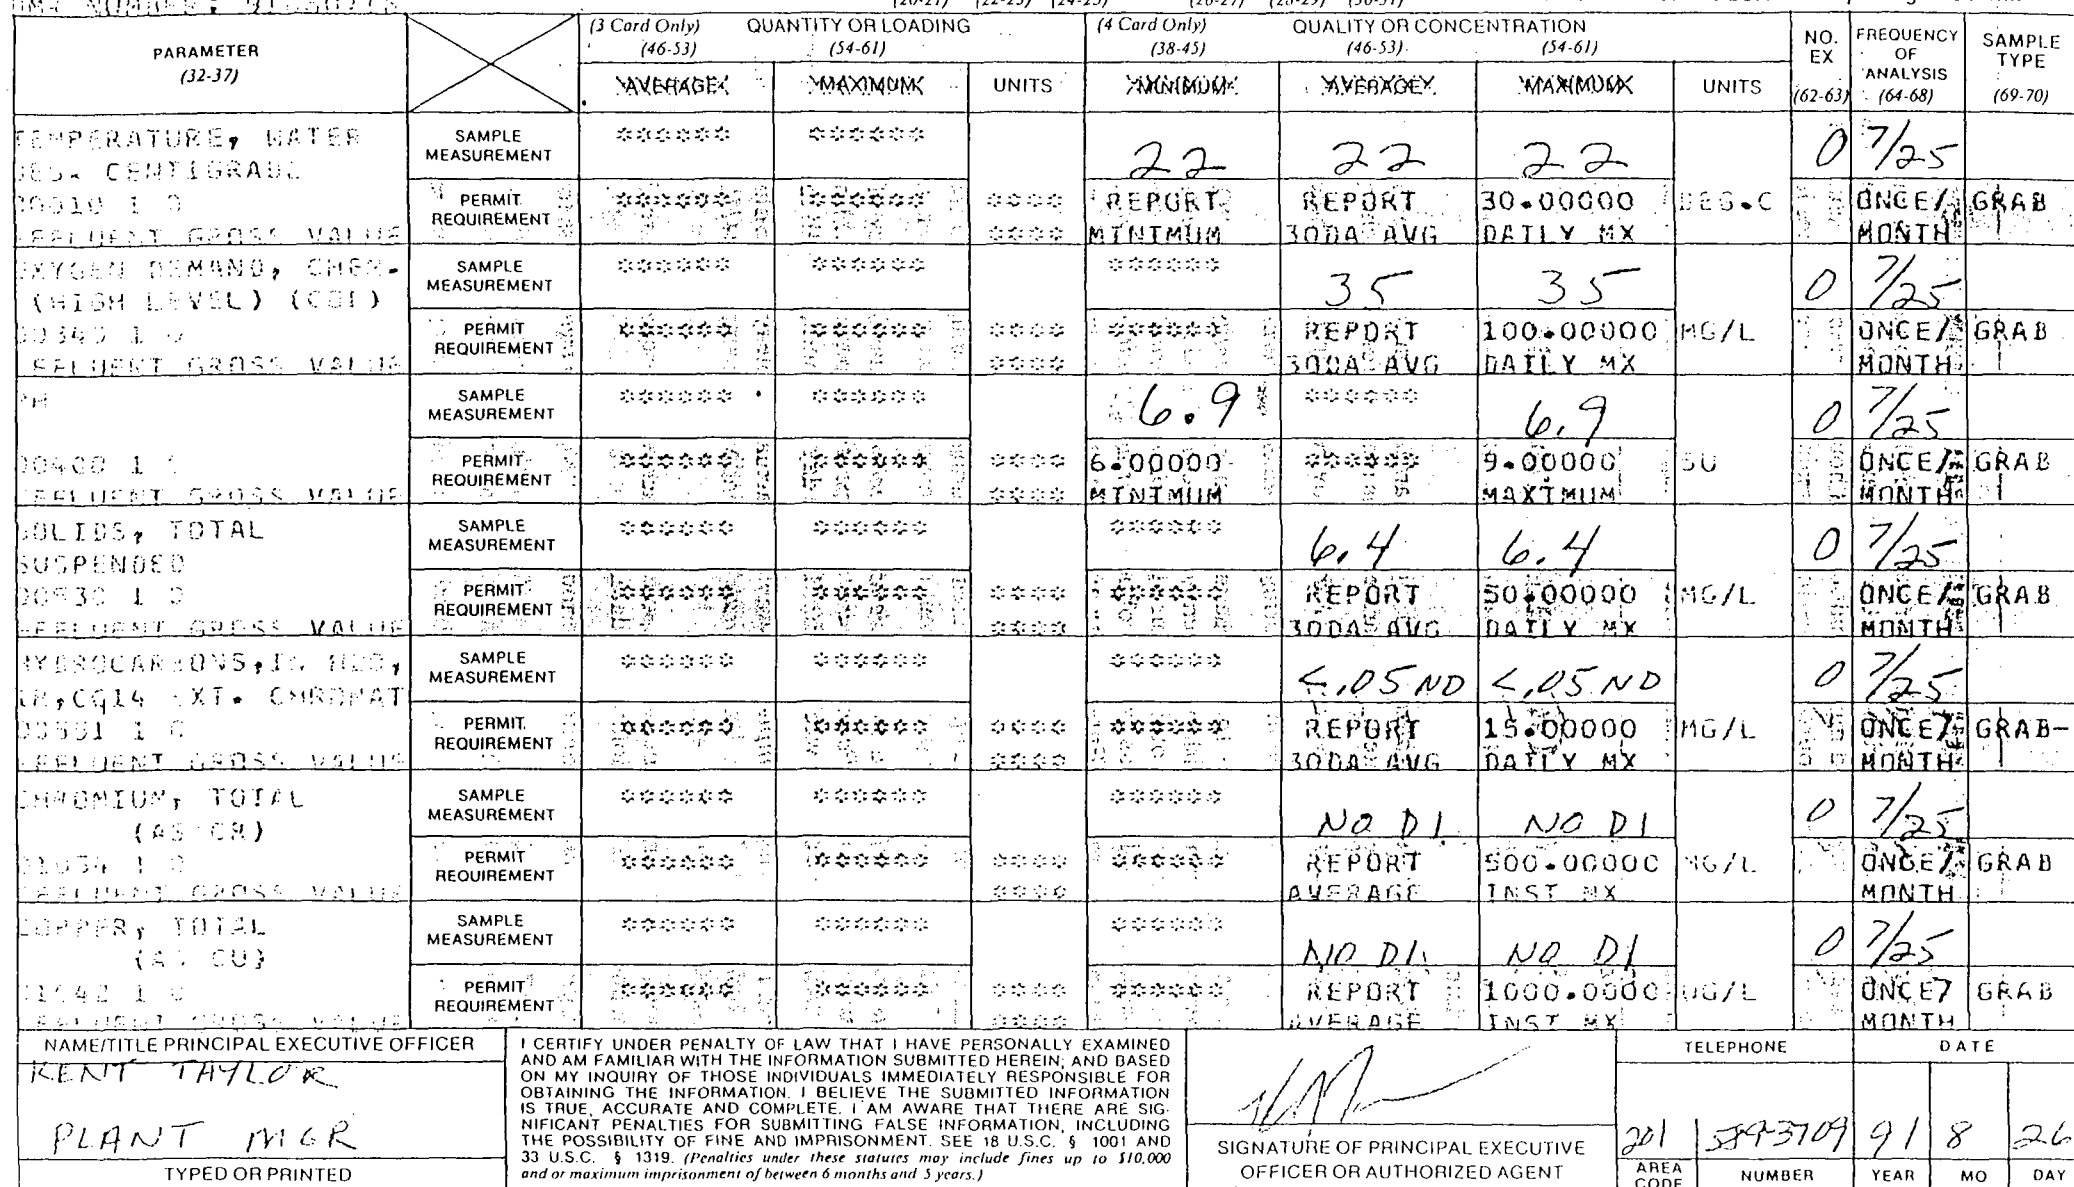 DMR NUMBER: 
(20-21) (22-23) (24-25) (26-27) (28-29) (30-31)
PARAMETER
(32-37)
(3 Card Only) QUANTITY OR LOADING
(46-53) (54-61)
AVERAGE MAXIMUM UNITS
(4 Card Only) QUALITY OR CONCENTRATION
(38-45) (46-53) (54-61)
MINIMUM AVERAGE MAXIMUM UNITS
NO. EX
(62-63)
FREQUENCY OF ANALYSIS
(64-68)
SAMPLE TYPE
(69-70)
TEMPERATURE, WATER
DEG. CENTIGRADE
00010 1 0
EFFLUENT GROSS VALUE
SAMPLE MEASUREMENT ****** ****** 22 22 22 0 7/25
PERMIT REQUIREMENT ****** ****** **** REPORT REPORT 30.00000 DEG.C ONCE/ GRAB
**** MINIMUM 30DA AVG DAILY MX MONTH
OXYGEN DEMAND, CHEM.
(HIGH LEVEL) (COD)
00340 1 0
EFFLUENT GROSS VALUE
SAMPLE MEASUREMENT ****** ****** ****** 35 35 0 7/25
PERMIT REQUIREMENT ****** ****** **** ****** REPORT 100.00000 MG/L ONCE/ GRAB
**** 30DA AVG DAILY MX MONTH
PH
00400 1 0
EFFLUENT GROSS VALUE
SAMPLE MEASUREMENT ****** ****** 6.9 ****** 6.9 0 7/25
PERMIT REQUIREMENT ****** ****** **** 6.00000 ****** 9.00000 SU ONCE/ GRAB
**** MINIMUM MAXIMUM MONTH
SOLIDS, TOTAL
SUSPENDED
00530 1 0
EFFLUENT GROSS VALUE
SAMPLE MEASUREMENT ****** ****** ****** 6.4 6.4 0 7/25
PERMIT REQUIREMENT ****** ****** **** ****** REPORT 50.00000 MG/L ONCE/ GRAB
**** 30DA AVG DAILY MX MONTH
HYDROCARBONS,IN H2O,
IR,CC14 EXT. CHROMAT
00551 1 0
EFFLUENT GROSS VALUE
SAMPLE MEASUREMENT ****** ****** ****** <.05 ND <.05 ND 0 7/25
PERMIT REQUIREMENT ****** ****** **** ****** REPORT 15.00000 MG/L ONCE/ GRAB-
**** 30DA AVG DAILY MX MONTH
CHROMIUM, TOTAL
(AS CR)
01034 1 0
EFFLUENT GROSS VALUE
SAMPLE MEASUREMENT ****** ****** ****** NO DI NO DI 0 7/25
PERMIT REQUIREMENT ****** ****** **** ****** REPORT 500.00000 ONCE/ GRAB
**** AVERAGE INST MX MONTH
COPPER, TOTAL
(AS CU)
01042 1 0
EFFLUENT GROSS VALUE
SAMPLE MEASUREMENT ****** ****** ****** NO DI NO DI 0 7/25
PERMIT REQUIREMENT ****** ****** **** ****** REPORT 1000.0000 UG/L ONCE/ GRAB
**** AVERAGE INST MX MONTH
NAME/TITLE PRINCIPAL EXECUTIVE OFFICER
KENT TAYLOR
PLANT MGR
TYPED OR PRINTED
I CERTIFY UNDER PENALTY OF LAW THAT I HAVE PERSONALLY EXAMINED
AND AM FAMILIAR WITH THE INFORMATION SUBMITTED HEREIN; AND BASED
ON MY INQUIRY OF THOSE INDIVIDUALS IMMEDIATELY RESPONSIBLE FOR
OBTAINING THE INFORMATION. I BELIEVE THE SUBMITTED INFORMATION
IS TRUE, ACCURATE AND COMPLETE. I AM AWARE THAT THERE ARE SIG-
NIFICANT PENALTIES FOR SUBMITTING FALSE INFORMATION, INCLUDING
THE POSSIBILITY OF FINE AND IMPRISONMENT. SEE 18 U.S.C. § 1001 AND
33 U.S.C. § 1319. (Penalties under these statutes may include fines up to $10,000
and or maximum imprisonment of between 6 months and 5 years.)
SIGNATURE OF PRINCIPAL EXECUTIVE
OFFICER OR AUTHORIZED AGENT
TELEPHONE
201 589-3709
AREA CODE NUMBER
DATE
91 8 26
YEAR MO DAY